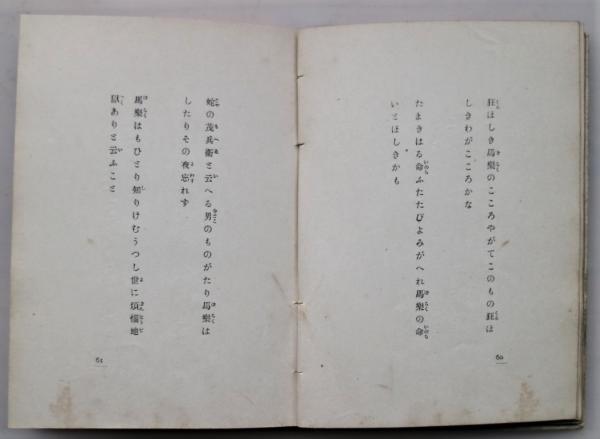 狂ほしき馬樂のこころやがてこのもの狂ほ
しきわがこころかな
たまきはる命ふたたびよみがへれ馬樂の命
いとほしきかも
60
蛇の茂兵衞と云へる男のものがたり馬樂は
したりその夜忘れず
馬樂はもひとり知りけむうつし世に煩惱地
獄ありと云ふこと
61